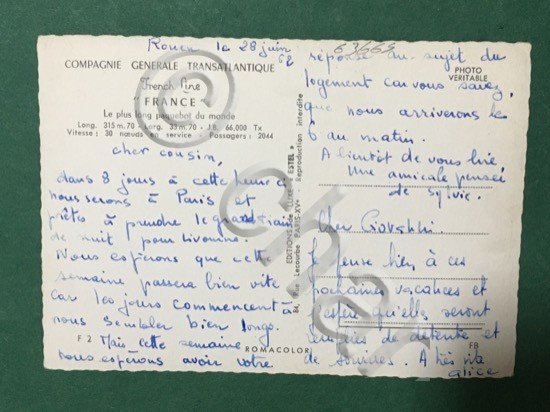 Rouen le 28 juin 62
COMPAGNIE GENERALE TRANSATLANTIQUE
French Line
" FRANCE "
Le plus long paquebot du monde
Long. 315 m. 70 - Larg. 33 m. 70 - J.B. 66.000 Tx
Vitesse : 30 nœuds en service - Passagers : 2044
cher cousin,
dans 8 jours à cette heure ci
nous serons à Paris et
prêtes à prendre le grand train
de nuit pour Livourne.
Nous espérons que cette
semaine passera bien vite
car les jours commencent à
nous sembler bien longs.
Mais cette semaine
nous espérons avoir votre
F 2
ROMACOLOR
EDITIONS de LUXE « ESTEL »
84, Rue Lecourbe PARIS-XV
Reproduction interdite
63/663
PHOTO
VERITABLE
réponse au sujet du
logement car vous savez
que nous arriverons le
6 au matin.
A bientôt de vous lire
Une amicale pensée
de Sylvie.
Cher
Je pense bien à ces
prochaines vacances et
j'espère qu'elles seront
de détente et
de sourires. A très vite
alice
FB